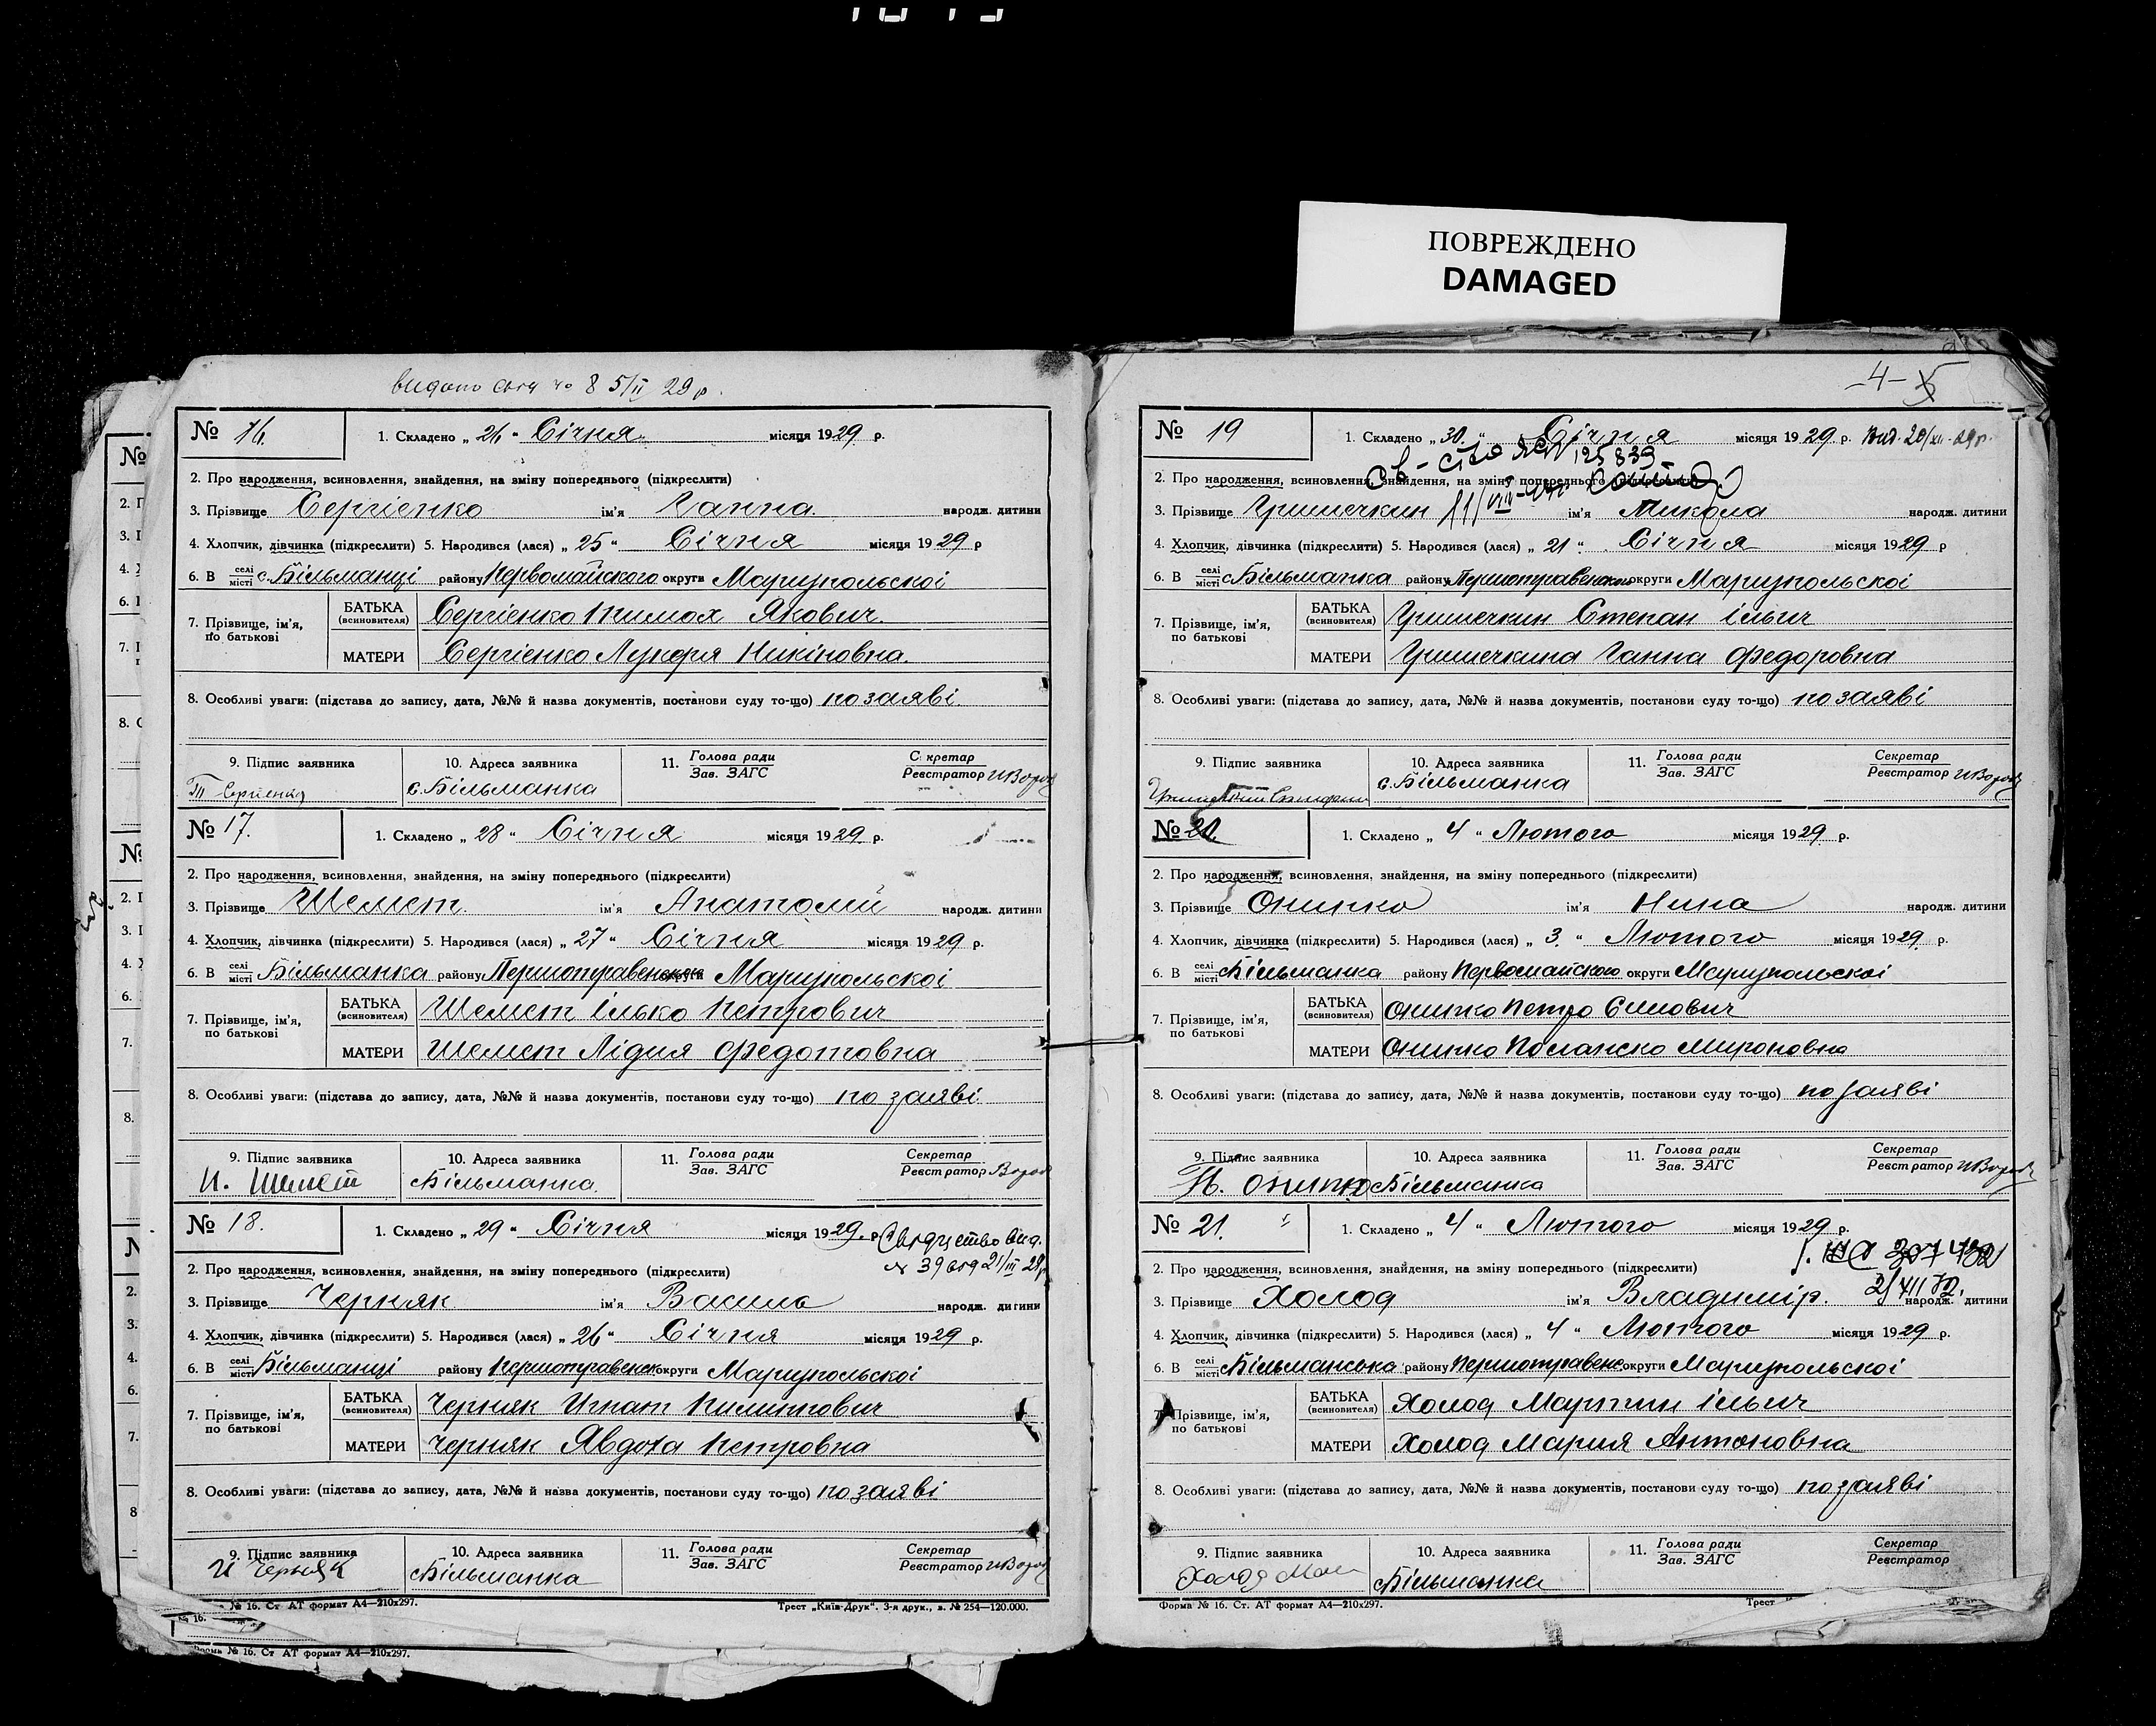 ПОВРЕЖДЕНО
DAMAGED
видано 8 5/II 29 р.
№ 16.
1. Складено „ 26 “ Січня місяця 1929 р.
2. Про народження, всиновлення, знайдення, на зміну попереднього (підкреслити)
3. Прізвище Сергієнко ім'я Ганна. народж. дитини
4. Хлопчик, дівчинка (підкреслити) 5. Народився (лася) „ 25 “ Січня місяця 1929 р
6. В селі місті с. Більманці району Первомайского округи Маріупольскоі
7. Прізвище, ім'я, по батькові
БАТЬКА (всиновителя) Сергієнко Тимох Якович.
МАТЕРИ Сергієнко Лукеря Никіновна.
8. Особливі уваги: (підстава до запису, дата, №№ й назва документів, постанови суду то-що) по заяві.
9. Підпис заявника 10. Адреса заявника 11. Голова ради Зав. ЗАГС Секретар Реєстратор
Т Сергіенко с. Більманка
№ 17.
1. Складено „ 28 “ Січня місяця 1929. р.
2. Про народження, всиновлення, знайдення, на зміну попереднього (підкреслити)
3. Прізвище Шемет. ім'я Анатолій народж. дитини
4. Хлопчик, дівчинка (підкреслити) 5. Народився (лася) „ 27 “ Січня місяця 1929 р.
6. В селі місті Більманка району округи Маріупольскоі
7. Прізвище, ім'я, по батькові
БАТЬКА (всиновителя) Шемет Ілько Петрович
МАТЕРИ Шемет Лідия Федотовна
8. Особливі уваги: (підстава до запису, дата, №№ й назва документів, постанови суду то-що) по заяві.
9. Підпис заявника 10. Адреса заявника 11. Голова ради Зав. ЗАГС Секретар Реєстратор
И. Шемет с Більманка.
№ 18.
1. Складено „ 29 “ Січня місяця 1929. р.
2. Про народження, всиновлення, знайдення, на зміну попереднього (підкреслити) № 39 21/III 29 р
3. Прізвище Черняк ім'я Василь народж. дитини
4. Хлопчик, дівчинка (підкреслити) 5. Народився (лася) „ 26 “ Січня місяця 1929 р.
6. В селі місті Більманці району округи Маріупольскоі
7. Прізвище, ім'я, по батькові
БАТЬКА (всиновителя) Черняк Игнат Пилиппович
МАТЕРИ Черняк Явдоха Петровна
8. Особливі уваги: (підстава до запису, дата, №№ й назва документів, постанови суду то-що) по заяві
9. Підпис заявника 10. Адреса заявника 11. Голова ради Зав. ЗАГС Секретар Реєстратор
И Черняк с Більманка
№ 16. Ст АТ формат А4—210x297. Трест „Київ-Друк“. 3-я друк., з. № 254—120.000.
№ 16. Ст АТ формат А4—210x297.
-4-
№ 19
1. Складено „ 30. “ Січня місяця 1929. р. Вид. 20/XII-29 р.
125839
2. Про народження, всиновлення, знайдення, на зміну попереднього (підкреслити)
3. Прізвище Гришечкин ім'я Микола народж. дитини
4. Хлопчик, дівчинка (підкреслити) 5. Народився (лася) „ 21 “ Січня місяця 1929 р
6. В селі місті с Більманка району округи Маріупольскоі
7. Прізвище, ім'я, по батькові
БАТЬКА (всиновителя) Гришечкин Степан Ільич
МАТЕРИ Гришечкина Ганна Федоровна
8. Особливі уваги: (підстава до запису, дата, №№ й назва документів, постанови суду то-що) по заяві
9. Підпис заявника 10. Адреса заявника 11. Голова ради Зав. ЗАГС Секретар Реєстратор
с. Більманка
№ 20.
1. Складено „ 4 “ Лютого місяця 1929. р.
2. Про народження, всиновлення, знайдення, на зміну попереднього (підкреслити)
3. Прізвище Онипко ім'я Нина народж. дитини
4. Хлопчик, дівчинка (підкреслити) 5. Народився (лася) „ 3. “ Лютого місяця 1929. р.
6. В селі місті с Більманка району Первомайского округи Маріупольскоі
7. Прізвище, ім'я, по батькові
БАТЬКА (всиновителя) Онипко Петро
МАТЕРИ Онипко Мироновна
8. Особливі уваги: (підстава до запису, дата, №№ й назва документів, постанови суду то-що) по заяві
9. Підпис заявника 10. Адреса заявника 11. Голова ради Зав. ЗАГС Секретар Реєстратор
Онипко с Більманка
№ 21.
1. Складено „ 4 “ Лютого місяця 1929 р.
2. Про народження, всиновлення, знайдення, на зміну попереднього (підкреслити)
3. Прізвище Холод ім'я Владимір. народж. дитини
4. Хлопчик, дівчинка (підкреслити) 5. Народився (лася) „ 4 “ Лютого місяця 1929 р.
6. В селі місті району округи Маріупольскоі
7. Прізвище, ім'я, по батькові
БАТЬКА (всиновителя) Холод Мартин Ільич
МАТЕРИ Холод Мария Антоновна
8. Особливі уваги: (підстава до запису, дата, №№ й назва документів, постанови суду то-що) по заяві
9. Підпис заявника 10. Адреса заявника 11. Голова ради Зав. ЗАГС Секретар Реєстратор
Холод с Більманка
Форма № 16. Ст. АТ формат А4—210x297. Трест